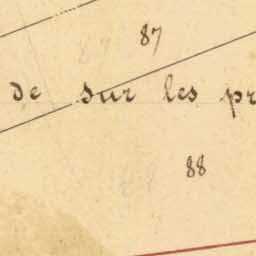 87
de sur les pr
88